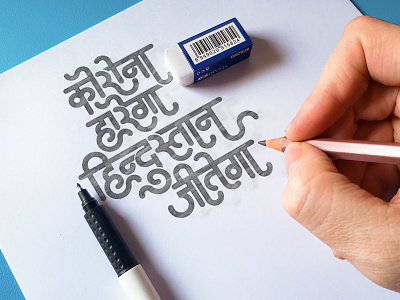 कोरोना
हारेगा
हिन्दुस्तान
जीतेगा